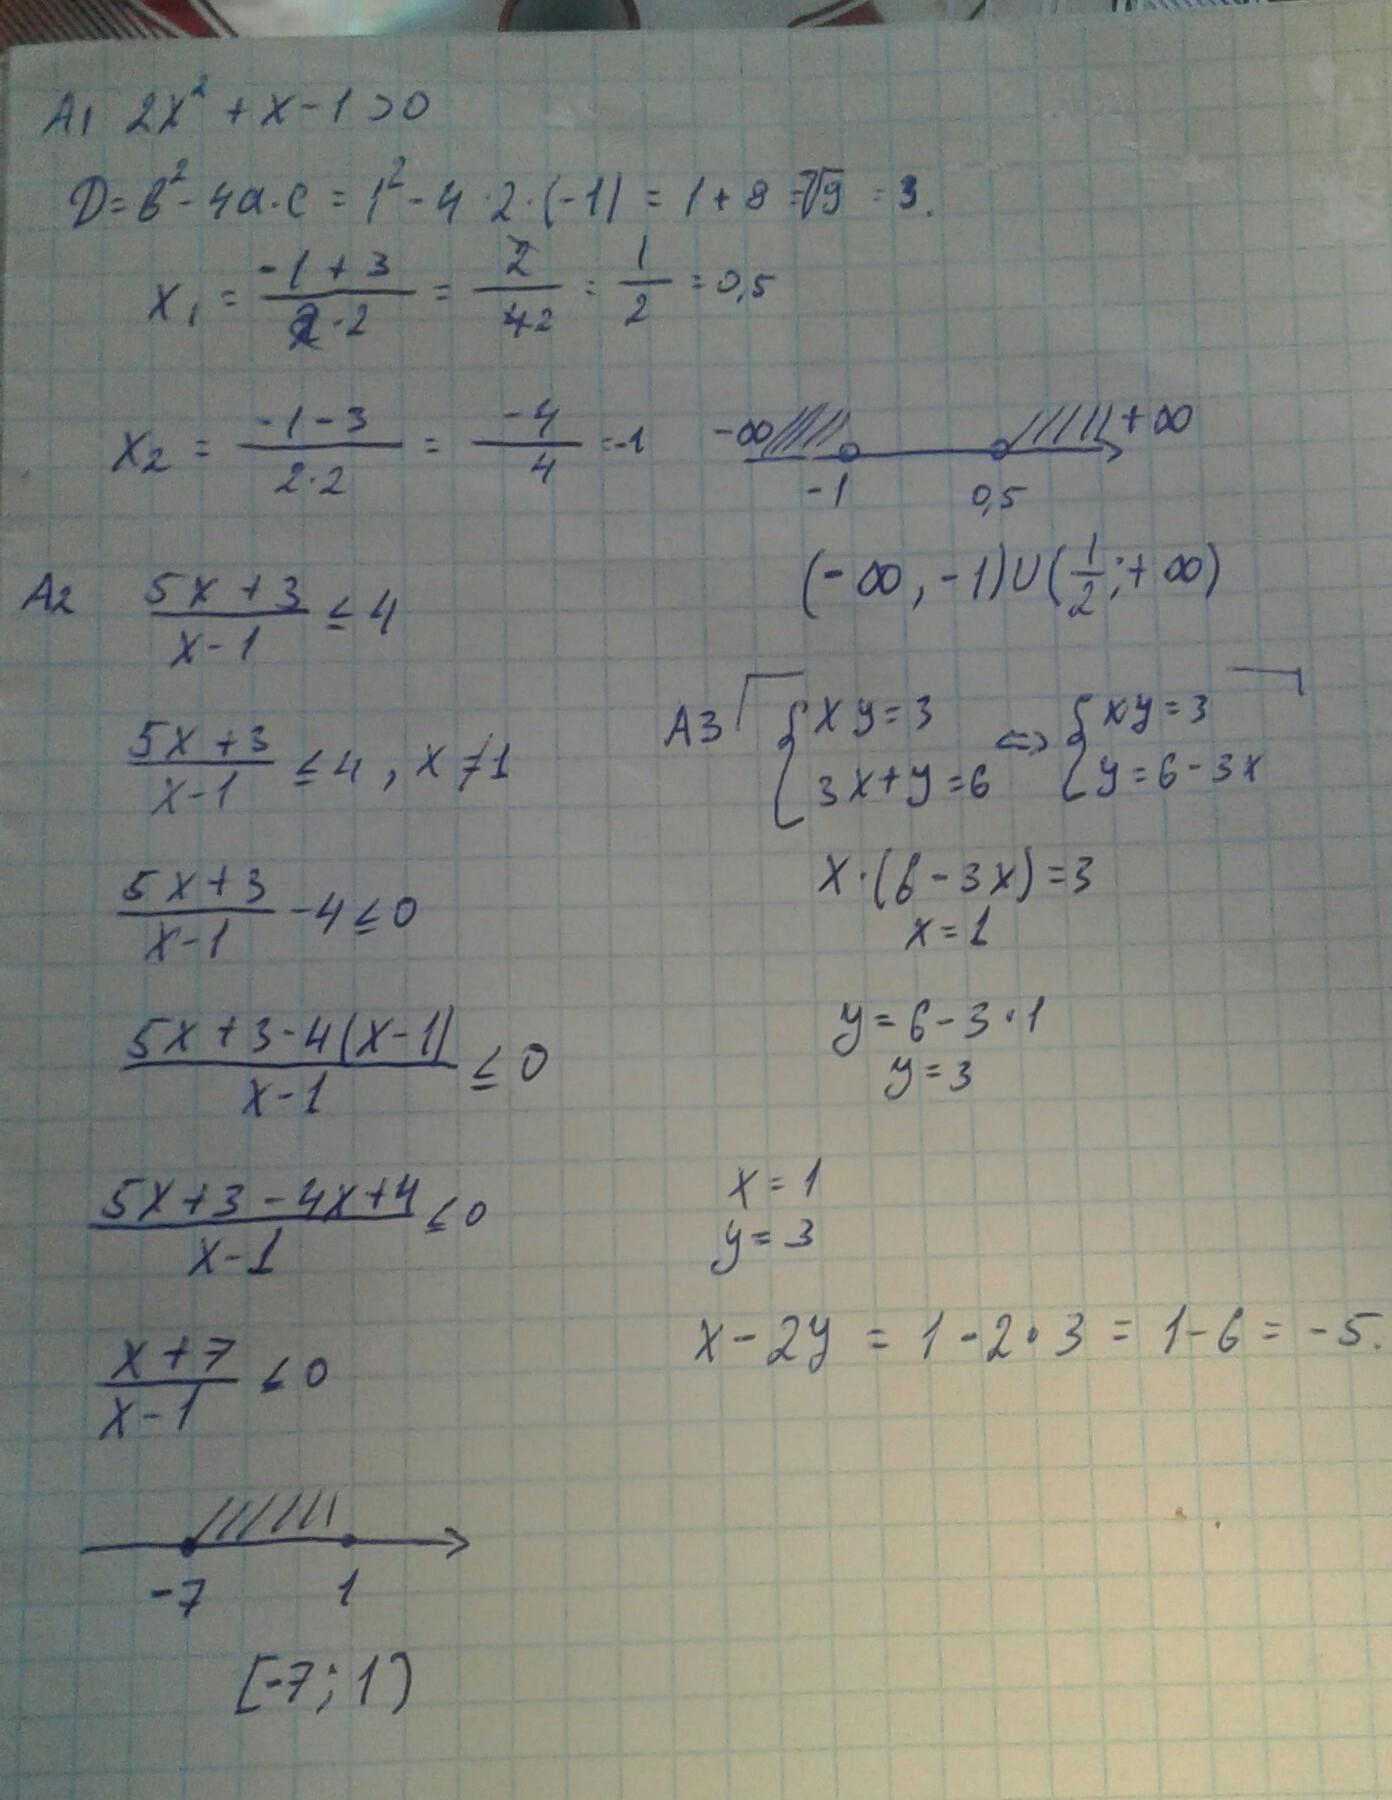 А1 2x² + x - 1 > 0
D = b² - 4a·c = 1² - 4·2·(-1) = 1 + 8 = √9 = 3.
x₁ = (-1 + 3)/(2·2) = 2/42 = 1/2 = 0,5
x₂ = (-1 - 3)/(2·2) = -4/4 = -1
-∞ +∞
-1 0,5
(-∞, -1)∪(1/2; +∞)
А2 (5x + 3)/(x - 1) ≤ 4
(5x + 3)/(x - 1) ≤ 4, x ≠ 1
(5x + 3)/(x - 1) - 4 ≤ 0
(5x + 3 - 4(x - 1))/(x - 1) ≤ 0
(5x + 3 - 4x + 4)/(x - 1) ≤ 0
(x + 7)/(x - 1) ≤ 0
-7 1
[-7; 1)
А3 { xy = 3 ⇔ { xy = 3
3x + y = 6 y = 6 - 3x
x·(6 - 3x) = 3
x = 1
y = 6 - 3·1
y = 3
x = 1
y = 3
x - 2y = 1 - 2·3 = 1 - 6 = -5.